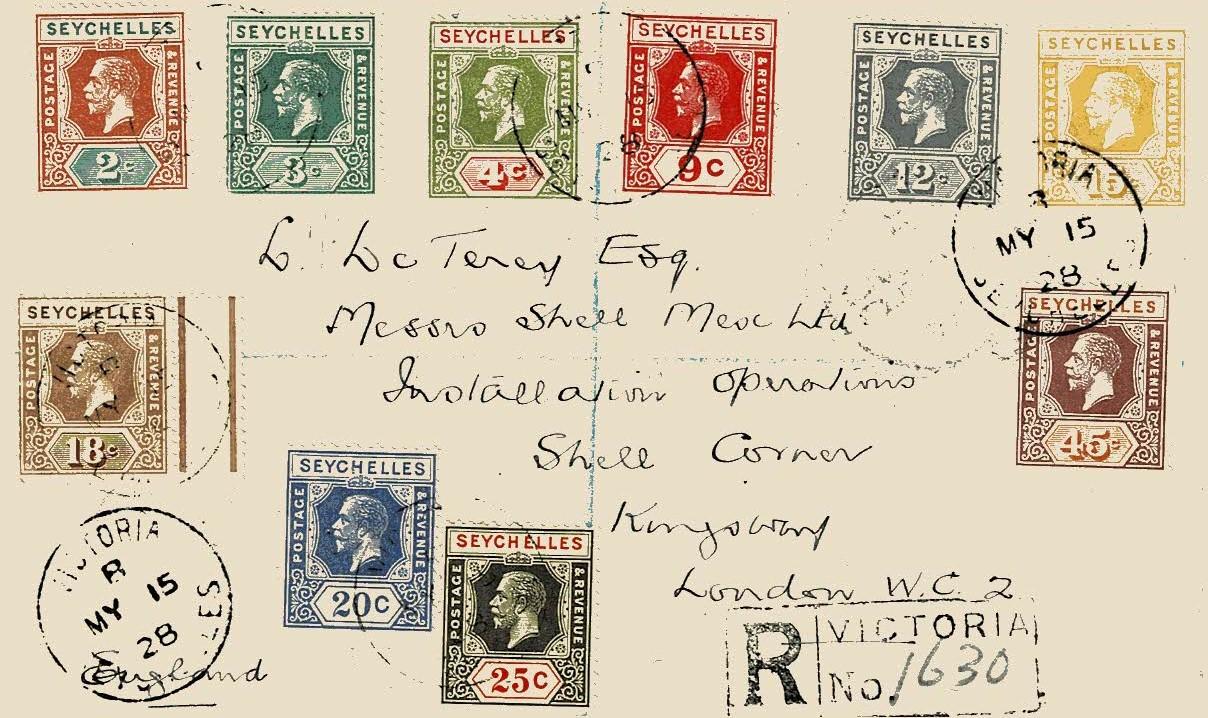 SEYCHELLES POSTAGE & REVENUE 2c
SEYCHELLES POSTAGE & REVENUE 3c
SEYCHELLES POSTAGE & REVENUE 4c
SEYCHELLES POSTAGE & REVENUE 9c
SEYCHELLES POSTAGE & REVENUE 12c
SEYCHELLES POSTAGE & REVENUE 15c
28
VICTORIA
MY 15
28
SEYCHELLES
Esq.
Messrs Shell Mex Ltd
Installation Operations
Shell Corner
Kingsway
London W.C. 2
SEYCHELLES POSTAGE & REVENUE 18c
SEYCHELLES POSTAGE & REVENUE 45c
SEYCHELLES POSTAGE & REVENUE 20c
SEYCHELLES POSTAGE & REVENUE 25c
VICTORIA
R
MY 15
28
SEYCHELLES
England
R VICTORIA
No. 1630